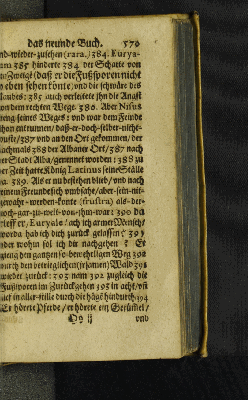 das neunde Buch. 579
nd-wieder-ziehen (rara. 384. Eurya-
am 385 hinderte 384 der Schatte von
n Zweige (daß er die Fußsporen nicht
eben sehen konte, und die schwäre des
laubes: 385 auch verleitete ihn die Angst
on dem rechten Wege. 386. Aber Nisus
ieng seines Weges und war dem Feinde
hon entrunnen/ daß-er-doch-selber-nicht-
wuste/ 387 und an den Ort gekommen/ der
nachmals 388 der Albaner Ort/ 387 nach
er Stadt Alba/ genennet worden: 388 zu
er Zeit hatte König Latinus seine Ställe
a. 389. Als er nu bestehen blieb/ und nach
einem Freunde sich umbsahe/ aber-sein-nit-
gewahr-werden-konte (frustra) als-der-
noch-gar-zu-weit-von-ihm-war: 390 da
rieff er, Euryale/ ach ich armer Mensch/
worda hab ich dich zurück gelassen? 391
nder wohin sol ich dir nachgehen? Er
gieng den ganzen so-beweltigen Weg 392
durch den betrieglichen (irsamen) Wald 391
wieder zurück: 393 nam 392 zugleich die
Fußsporen im Zurückgehen 393 in acht/ un
lief in aller-stille durch die häge hindurch: 394
Er hörete Pferde/ er hörete ein Getümel/
Oo ij und